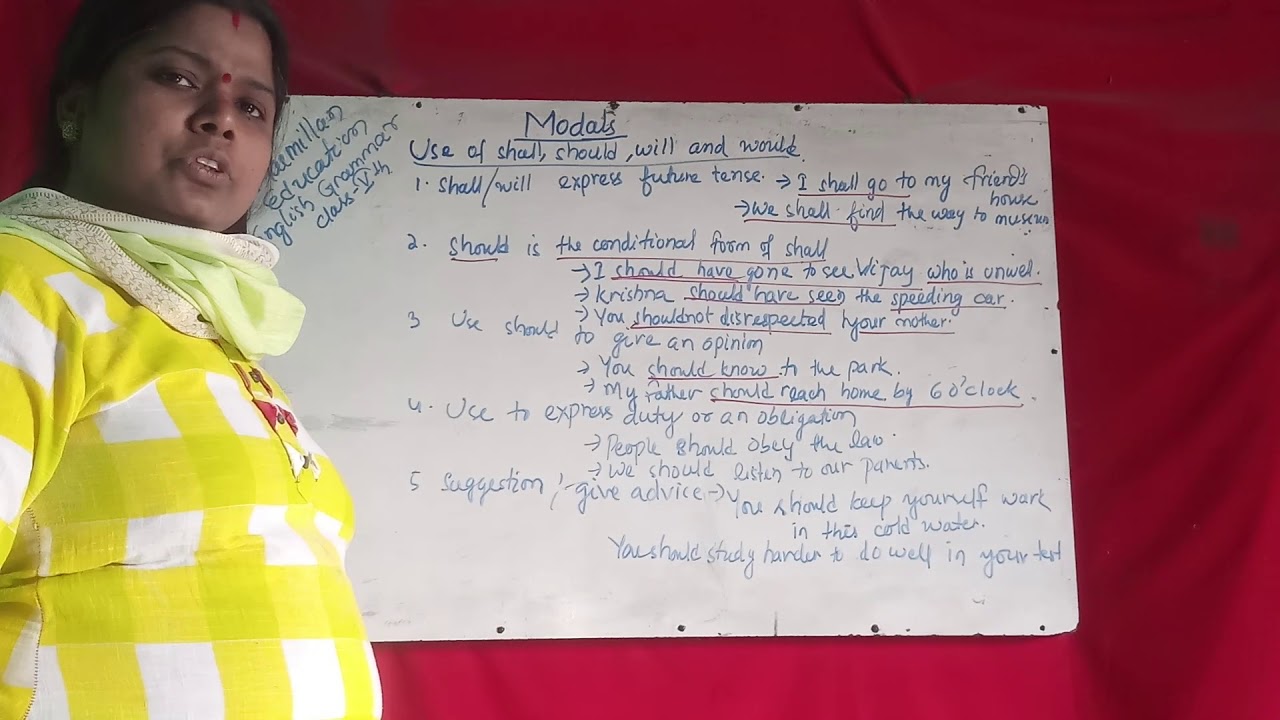 education
English Grammar
class-Vth
Modals
Use of shall, should, will and would.
1. Shall/will express future tense. → I shall go to my friend's house
→ We shall find the way to museum
2. Should is the conditional form of shall
→ I should have gone to see Vijay who is unwel.
→ Krishna should have seen the speeding car.
→ You shouldnot disrespected your mother.
3 Use should to give an opinion
→ You should know to the park.
→ My father should reach home by 6 o'clock.
4. Use to express duty or an obligation
→ People should obey the law.
→ We should listen to our parents.
5 Suggestion, give advice → You should keep yourself wark
in this cold water.
You should study harder to do well in your test